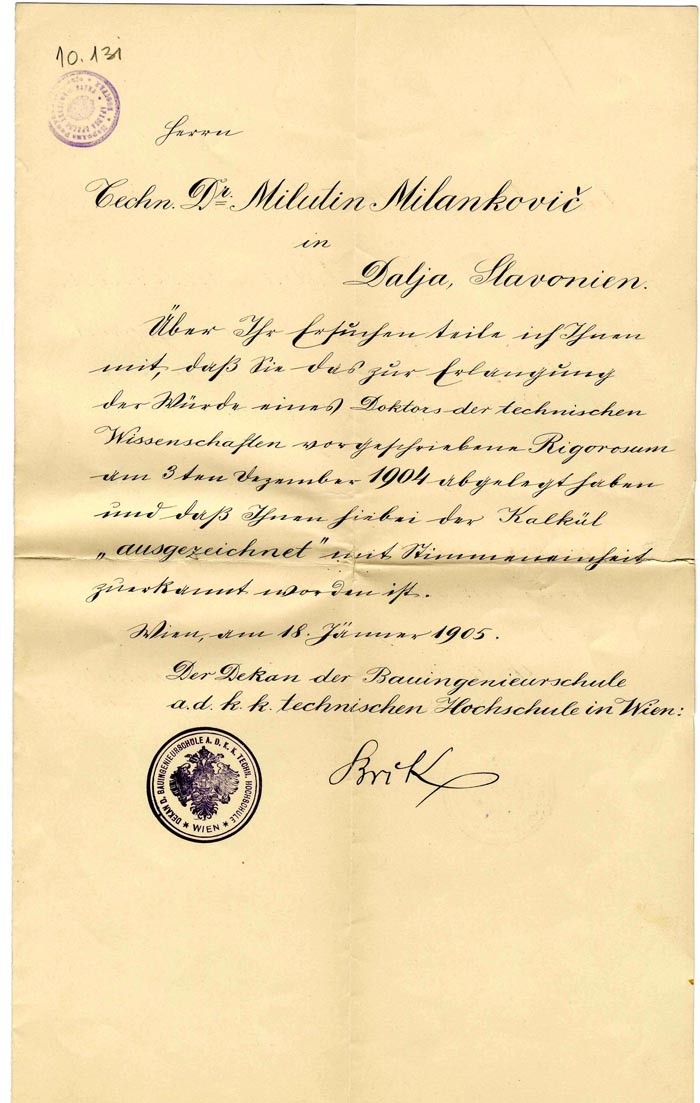 10.131
Herrn
Techn. Dr. Milutin Milankovič
in
Dalja, Slavonien.
Über Ihr Ersuchen teile ich Ihnen
mit, daß Sie das zur Erlangung
der Würde eines Doktors der technischen
Wissenschaften vorgeschriebene Rigorosum
am 3ten Dezember 1904 abgelegt haben
und daß Ihnen hiebei der Kalkül
„ausgezeichnet" mit Stimmeneinheit
zuerkannt worden ist.
Wien, am 18. Jänner 1905.
Der Dekan der Bauingenieurschule
a. d. k. k. technischen Hochschule in Wien:
Brik
DEKAN D. BAUINGENIEURSCHULE A. D. K. K. TECHN. HOCHSCHULE
* WIEN *